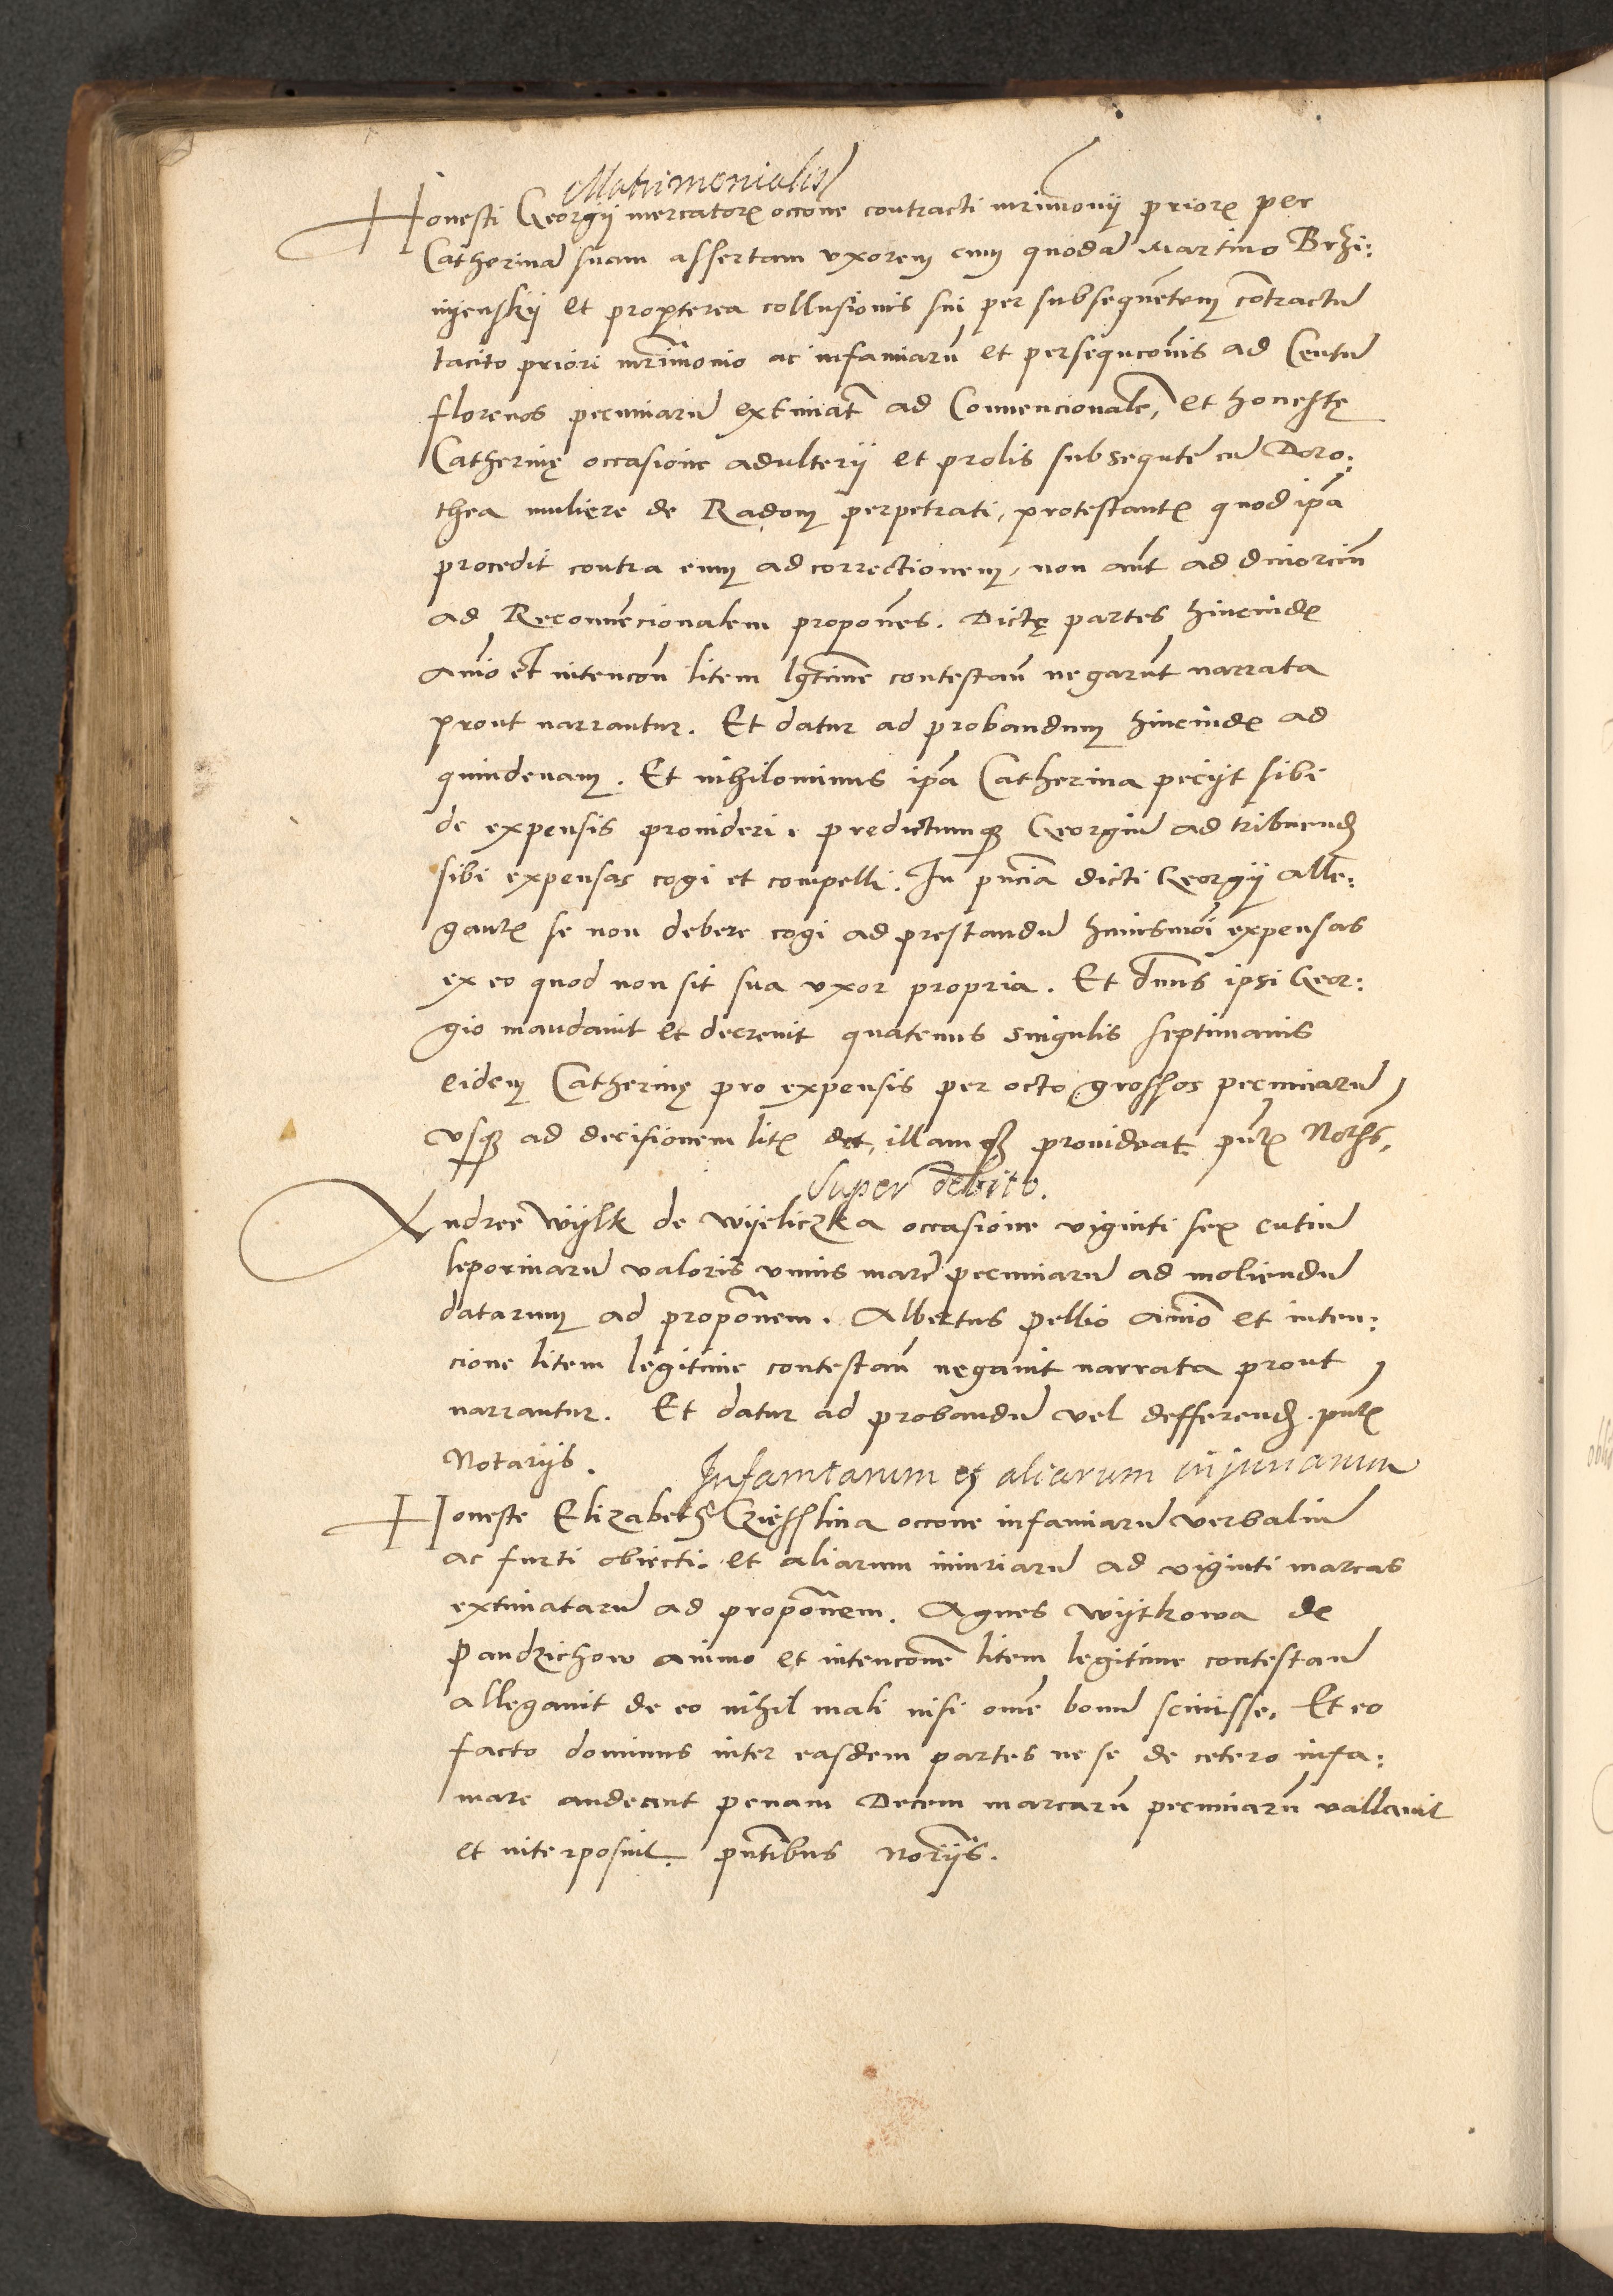 Matrimonialis
Honesti Georgii mercatoris occone contracti mrimonij prioris per
Catherinā suam assertam vxorem cum quodā Martino Brzi:
nyenskij et propterea collusionis sui per subsequētem cōtractū
tacito priori mrimonio ac infamiarū et persequconis ad Centū
florenos pecuniarū extimat̄ ad Conuencionalē, et honestę
Catherinę occasione adulterij et prolis subsequtē cū Doro:
thea muliere de Radom perpetrati, protestantis quod ip̄a
procedit contra eum ad correctionem, non aūt ad diuorciū
ad Reconuēcionalem propōnes. Dictę partes hincinde
anīo et intencōn litem lgtime contestan̄ negarūt narrata
prout narrantur. Et datur ad probandum hincinde ad
quindenam. Et nihilominus ip̄a Catherina pecijt sibi
de expensis prouideri, predictumq; Georgiū ad tribuend
sibi expensas cogi et compelli. In pn̄cia dicti Georgij alle:
gantis se non debere cogi ad prestandū huiusmōi expensas
ex eo quod non sit sua vxor propria. Et dn̄us ipsi Geor:
gio mandauit et decreuit quatenus singulis septimanis
eidem Catherinę pro expensis per octo grossos pecuniarū
vsq; ad decisionem litis det, illamq; prouideat pn̄tis Noths.
Super debito.
Andree Wijlk de Wijeliczka occasione viginti sex cutiū
leporinarū valoris vnius marc̄ pecuniarū ad moliendū
datarum ad propōnem. Albertus pellio anīo et inten:
cione litem legitime contestan̄ negauit narrata prout
narrantur. Et datur ad probandū vel defferend. pn̄tis
Notarijs.
Infamiarum et aliarum injuriarum
Honeste Elizabeth Czieshlina occone infamiarū verbaliū
ac furti obiecti. et aliarum iniuriarū ad viginti marcas
extimatarū ad propōnem. Agnes Wijtkowa de
Pandzichow animo et intencōne litem legitime contestan̄
allegauit de eo nihil mali nisi om̄e bonū sciuisse. Et eo
facto dominus inter easdem partes ne se de cetero infa:
mare audeant penam Decem marcarū pecuniarū vallauit
et interposuit. pn̄tibus Norijs.